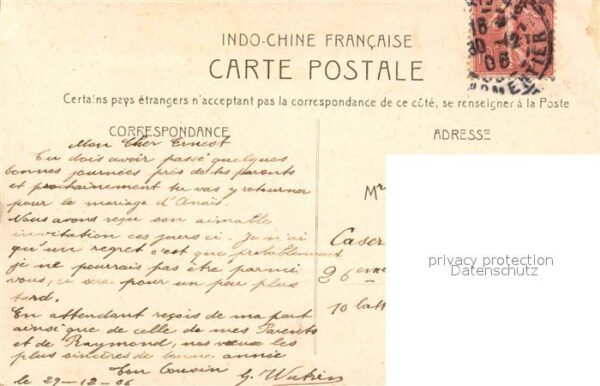 INDO-CHINE FRANÇAISE
CARTE POSTALE
Certains pays étrangers n'acceptant pas la correspondance de ce côté, se renseigner à la Poste
CORRESPONDANCE
Mon Cher Ernest
Tu dois avoir passé quelques
bonnes journées près de tes parents
et prochainement tu vas y retourner
pour le mariage d'Anaïs.
Nous avons reçu son aimable
invitation ces jours ci. Je n'ai
qu'un regret c'est que probablement
je ne pourrais pas être parmi
vous, ce sera pour un peu plus
tard.
En attendant reçois de ma part
ainsi que de celle de mes Parents
et de Raymond, nos vœux les
plus sincères de bonne année
Ton Cousin
le 29-12-06
ADRESSE
Mr
Caser
26eme
10 batt
privacy protection
Datenschutz